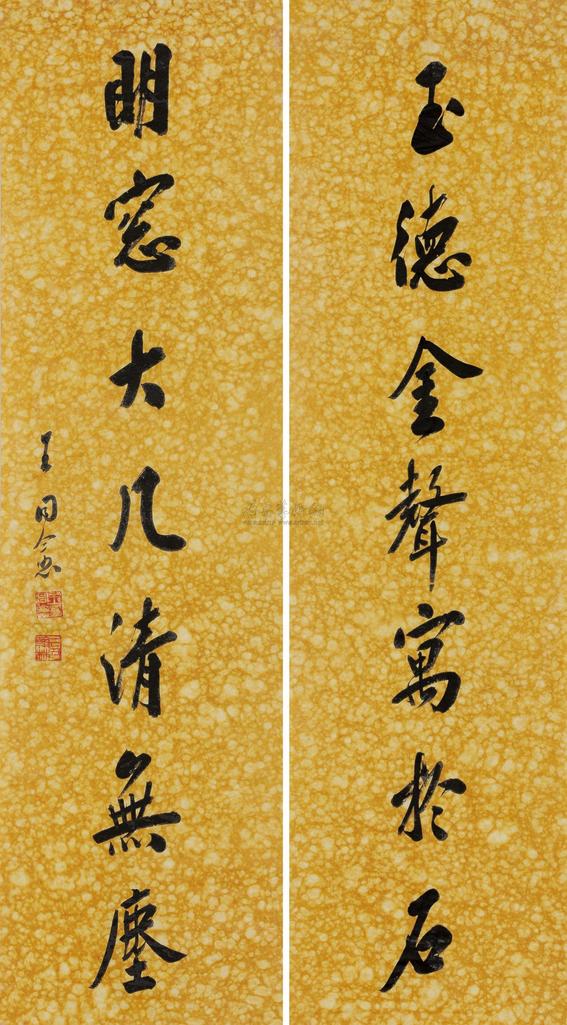 玉德金聲寓於石
明窓大几清無塵
王同愈